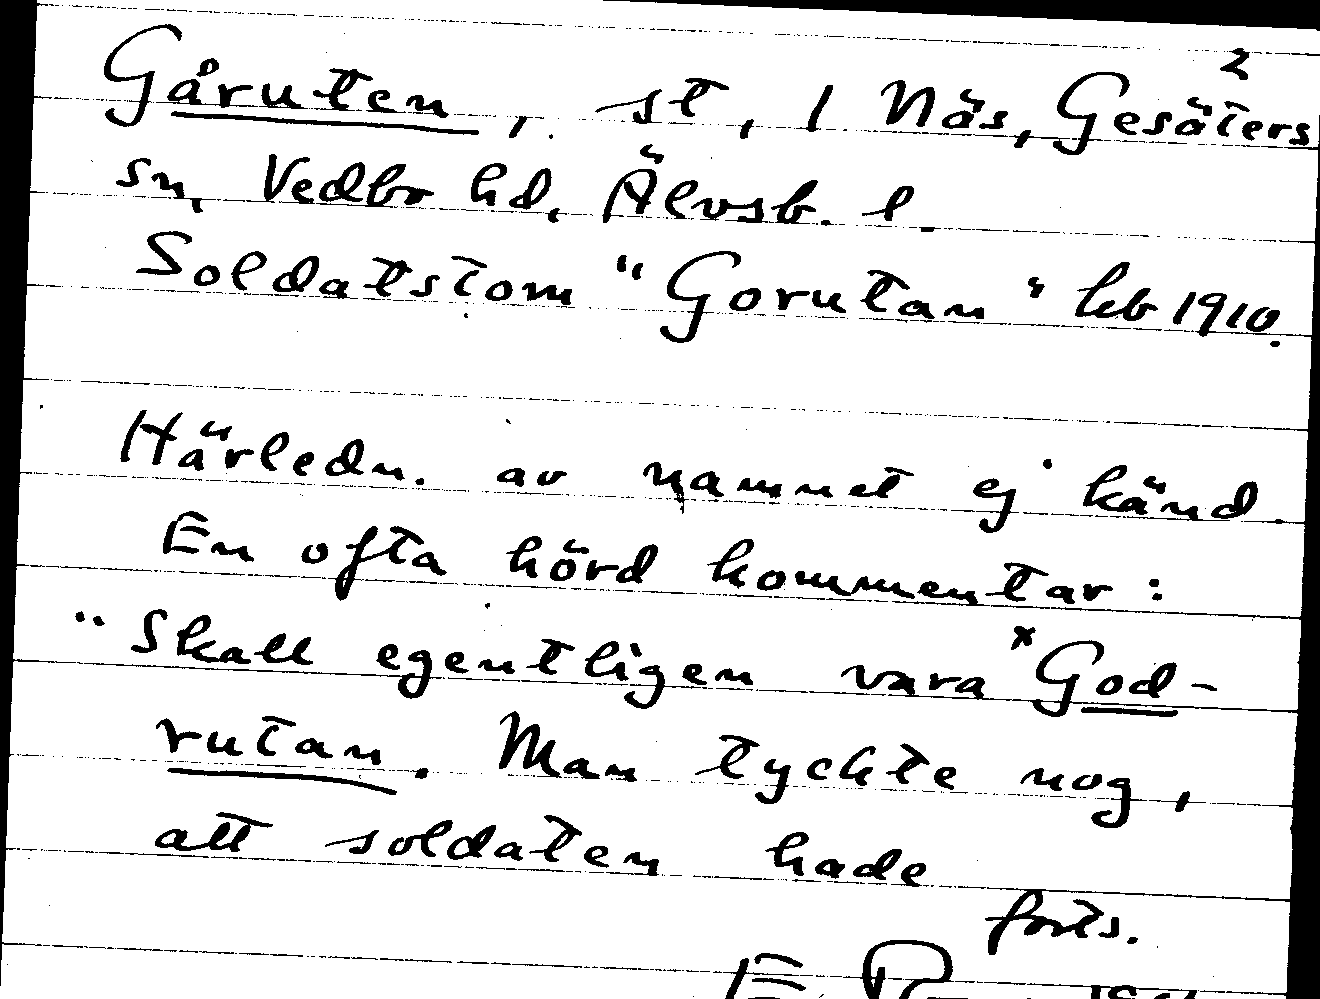 Gåruten, st, 1 Näs, Gesäters 2
sn, Vedbo hd, Älvsb. l.
Soldatstom "Gorutan" leb 1910.
Härledn. av namnet ej känd.
En ofta hörd kommentar:
"Skall egentligen vara *God-
rutan. Man tyckte nog,
att soldaten hade
forts.